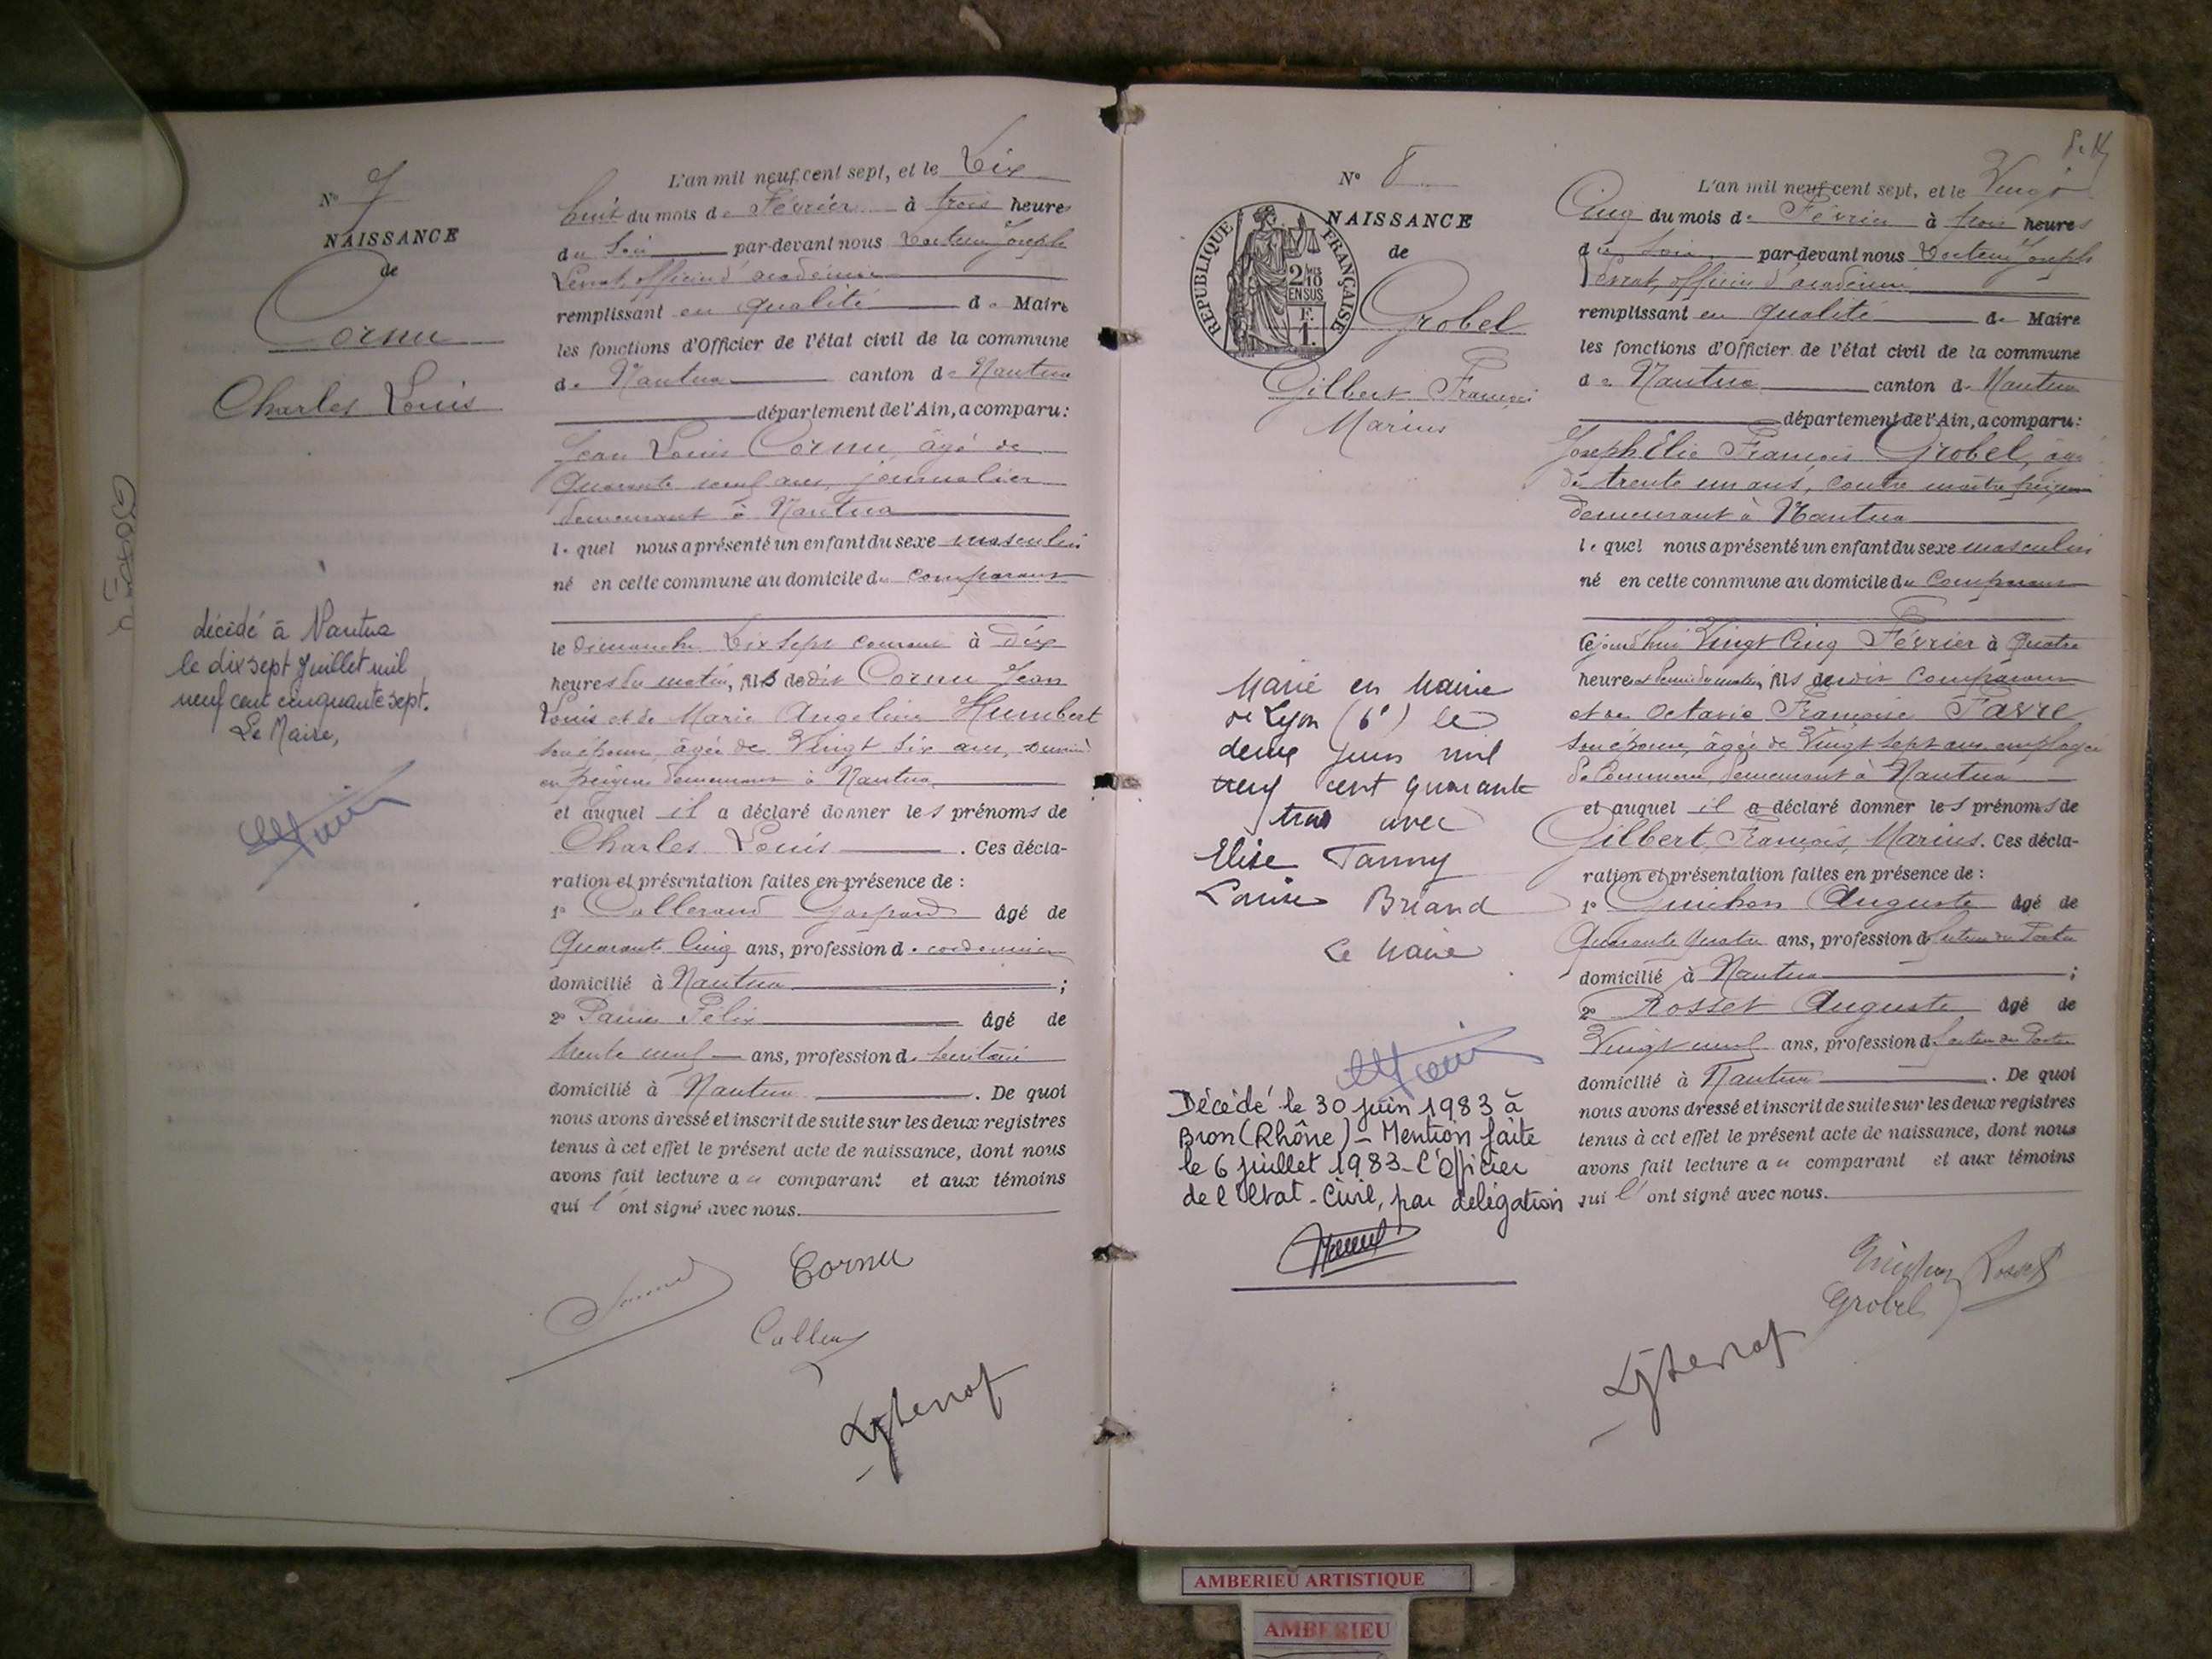 N° 7
NAISSANCE
de
Cornu
Charles Louis
décédé à Nantua
le dix sept Juillet mil
neuf cent cinquante sept.
Le Maire,
L'an mil neuf cent sept, et le Dix
huit du mois de Février à trois heures
du Soir par-devant nous Docteur Joseph
officier d'académie
remplissant en qualité de Maire
les fonctions d'Officier de l'état civil de la commune
de Nantua canton de Nantua
département de l'Ain, a comparu:
Jean Louis Cornu, âgé de
Quarante neuf ans, journalier
demeurant à Nantua
lequel nous a présenté un enfant du sexe masculin
né en cette commune au domicile du comparant
le dimanche Dix sept courant à dix
heures du matin, fils de dit Cornu Jean
Louis et de Marie Angeline Humbert
son épouse, âgée de Vingt six ans,
en peignes demeurant à Nantua
et auquel il a déclaré donner les prénoms de
Charles Louis. Ces décla-
ration et présentation faites en présence de :
1° Gaspard âgé de
Quarante Cinq ans, profession de cordonnier
domicilié à Nantua ;
2° Félix âgé de
trente neuf ans, profession de
domicilié à Nantua. De quoi
nous avons dressé et inscrit de suite sur les deux registres
tenus à cet effet le présent acte de naissance, dont nous
avons fait lecture au comparant et aux témoins
qui l'ont signé avec nous.
Cornu
N° 8
NAISSANCE
de
REPUBLIQUE FRANÇAISE
2/10
EN SUS
Grobel
Gilbert François
Marius
Marié en Mairie
de Lyon (6e) le
deux Juin mil
neuf cent quarante
trois avec
Elise Fanny
Louise Briand
Le Maire
Décédé le 30 juin 1983 à
Bron (Rhône) - Mention faite
le 6 juillet 1983 - L'Officier
de l'Etat-Civil, par délégation
L'an mil neuf cent sept, et le Vingt
Cinq du mois de Février à trois heures
du Soir par-devant nous Docteur Joseph
officier d'académie
remplissant en qualité de Maire
les fonctions d'Officier de l'état civil de la commune
de Nantua canton de Nantua
département de l'Ain, a comparu:
Joseph Elie François Grobel, âgé
de trente un ans, contre maître
demeurant à Nantua
lequel nous a présenté un enfant du sexe masculin
né en cette commune au domicile du Comparant
Cejourd'hui Vingt Cinq Février à Quatre
heures et demie du matin, fils de dit Comparant
et de Octavie Françoise Favre
son épouse, âgée de Vingt sept ans employée
de Commerce, demeurant à Nantua
et auquel il a déclaré donner les prénoms de
Gilbert, François, Marius. Ces décla-
ration et présentation faites en présence de :
1° Guichon Auguste âgé de
Quarante quatre ans, profession de facteur des Postes
domicilié à Nantua ;
2° Rosset Auguste âgé de
Vingt neuf ans, profession de facteur des Postes
domicilié à Nantua. De quoi
nous avons dressé et inscrit de suite sur les deux registres
tenus à cet effet le présent acte de naissance, dont nous
avons fait lecture au comparant et aux témoins
qui l'ont signé avec nous.
Guichon Rosset
Grobel
AMBERIEU ARTISTIQUE
AMBERIEU